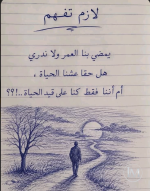 لازم تفهم
يمضي بنا العمر ولا ندري
هل حقا عشنا الحياة ،
أم أننا فقط كنا على قيد الحياة ..!؟؟